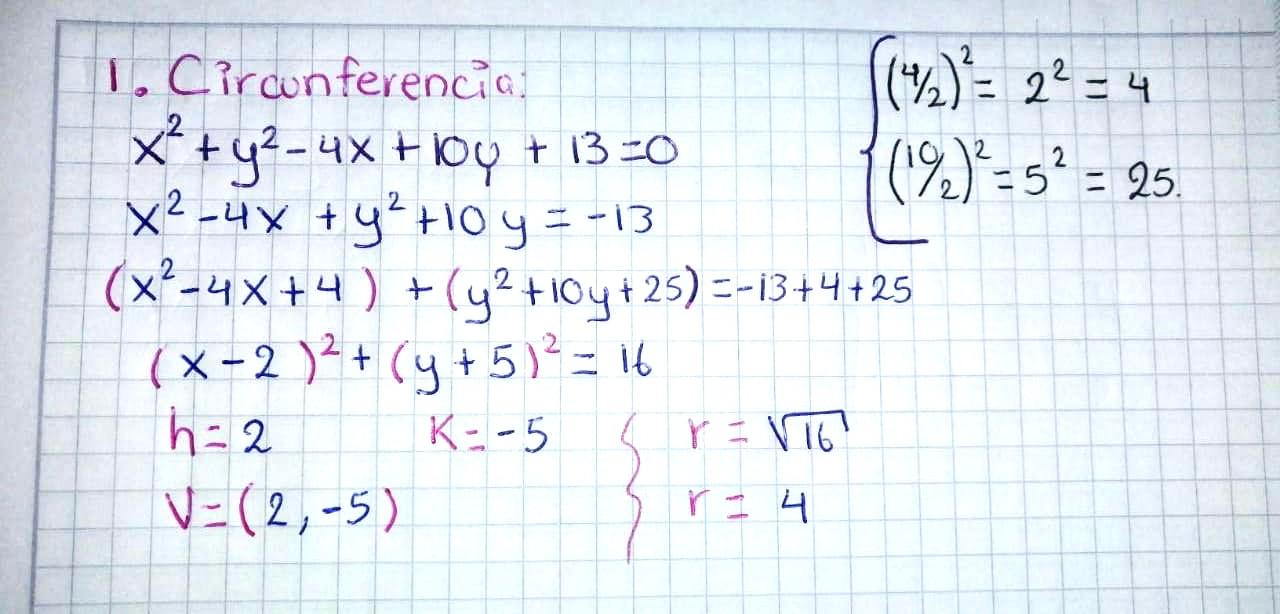 1. Circunferencia:
x² + y² - 4x + 10y + 13 = 0
x² - 4x + y² + 10y = -13
(x² - 4x + 4) + (y² + 10y + 25) = -13 + 4 + 25
(x - 2)² + (y + 5)² = 16
h = 2 K = -5
V = (2, -5)
r = √16
r = 4
(4/2)² = 2² = 4
(10/2)² = 5² = 25.